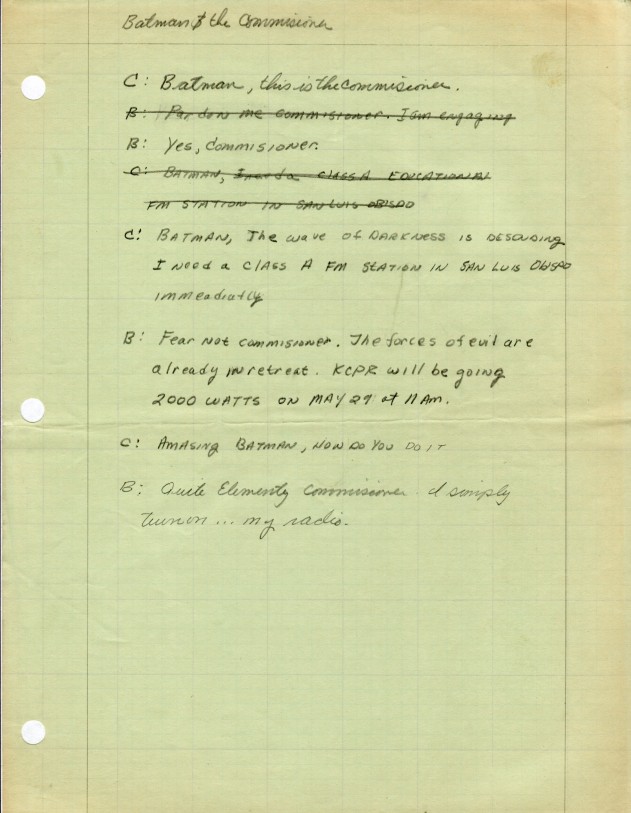 Batman & the Commisioner
C: Batman, this is the commisioner.
B: Pardon me commisioner. I am engaging
B: Yes, Commisioner.
C: BATMAN, I need a CLASS A EDUCATIONAL
FM STATION IN SAN LUIS OBISPO
C: BATMAN, The wave of DARKNESS is DESCNDING
I NEED a CLASS A FM STATION IN SAN LUIS OBISPO
immeadiatly
B: Fear Not commisioner. The forces of evil are
already in retreat. KCPR will be going
2000 WATTS ON MAY 29 at 11 Am.
C: AMASING BATMAN, HOW DO YOU DO IT
B: Quite Elementy Commisioner. I simply
turn on ... my radio.